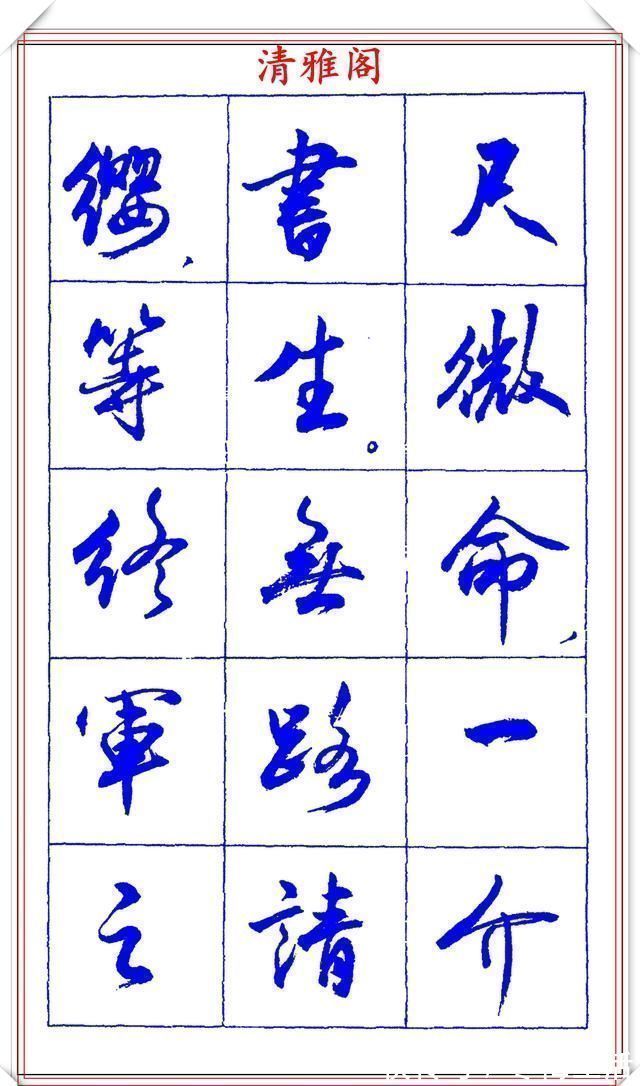 清雅阁
尺微命,一介
書生。無路請
纓,等終軍之